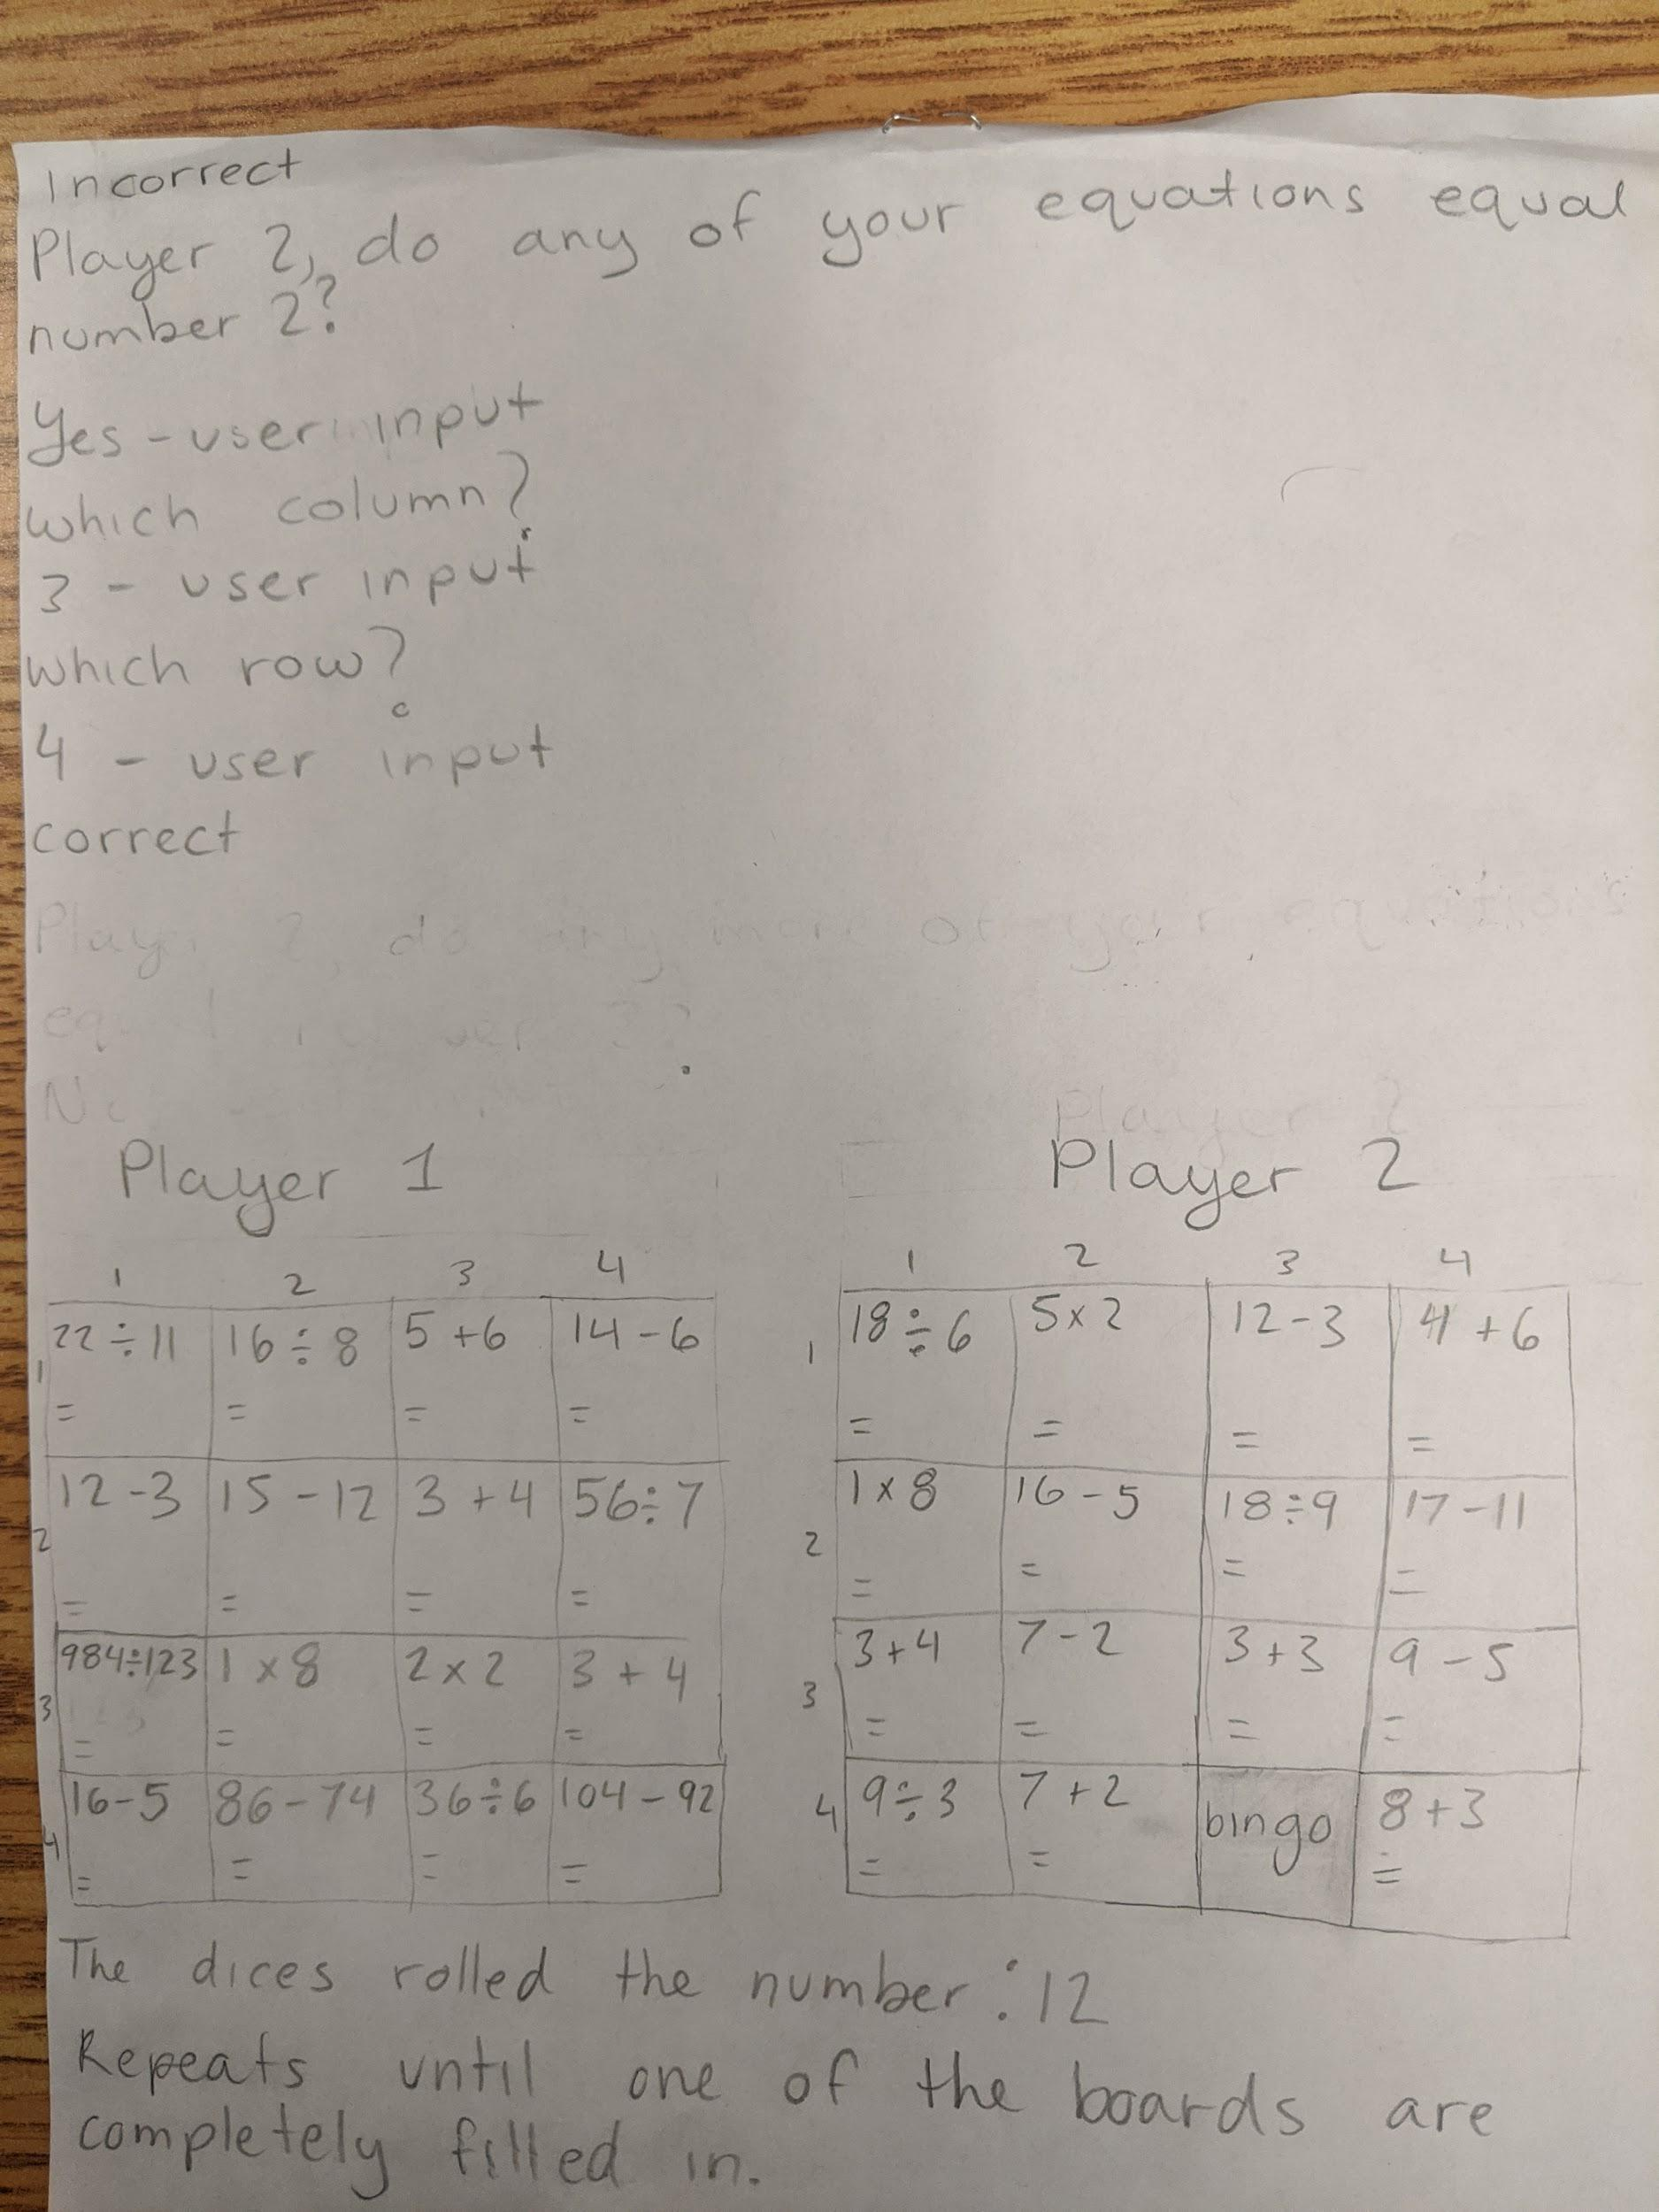 Incorrect
Player 2, do any of your equations equal
number 2?
Yes - user input
which column?
3 - user input
which row?
4 - user input
correct
Player 2, do any more of your equations
equal number 3?
No
Player 2
Player 1 Player 2
1 2 3 4
1 22÷11 16÷8 5+6 14-6
= = = =
2 12-3 15-12 3+4 56÷7
= = = =
3 984÷123 1×8 2×2 3+4
= = = =
4 16-5 86-74 36÷6 104-92
= = = =
1 2 3 4
1 18÷6 5×2 12-3 4+6
= = = =
2 1×8 16-5 18÷9 17-11
= = = =
3 3+4 7-2 3+3 9-5
= = = =
4 9÷3 7+2 bingo 8+3
= = =
The dices rolled the number: 12
Repeats until one of the boards are
completely filled in.